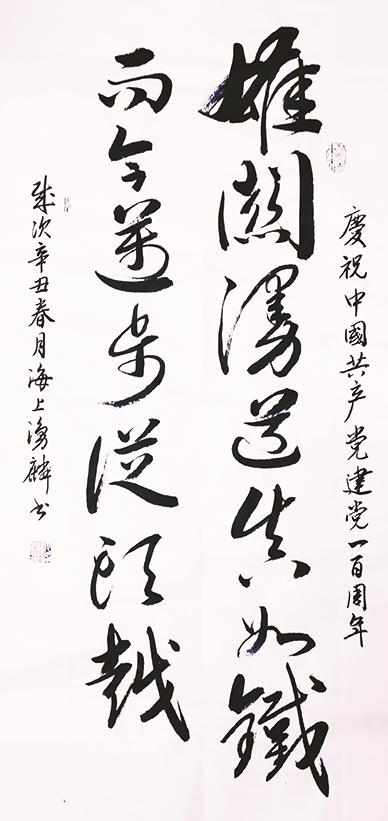 慶祝中國共产党建党一百周年
雄關漫道真如鐵
而今邁步從頭越
歲次辛丑春月海上湧麟书